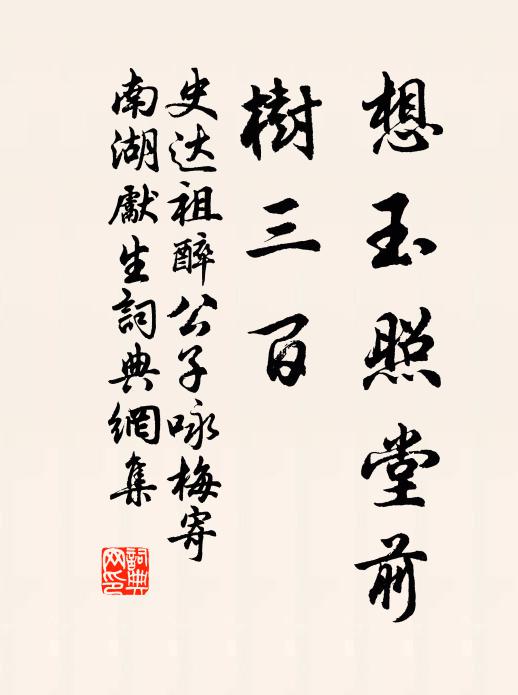 想玉照堂前
樹三百
史达祖醉公子咏梅寄
南湖獻生詞典網集
詞典
网印